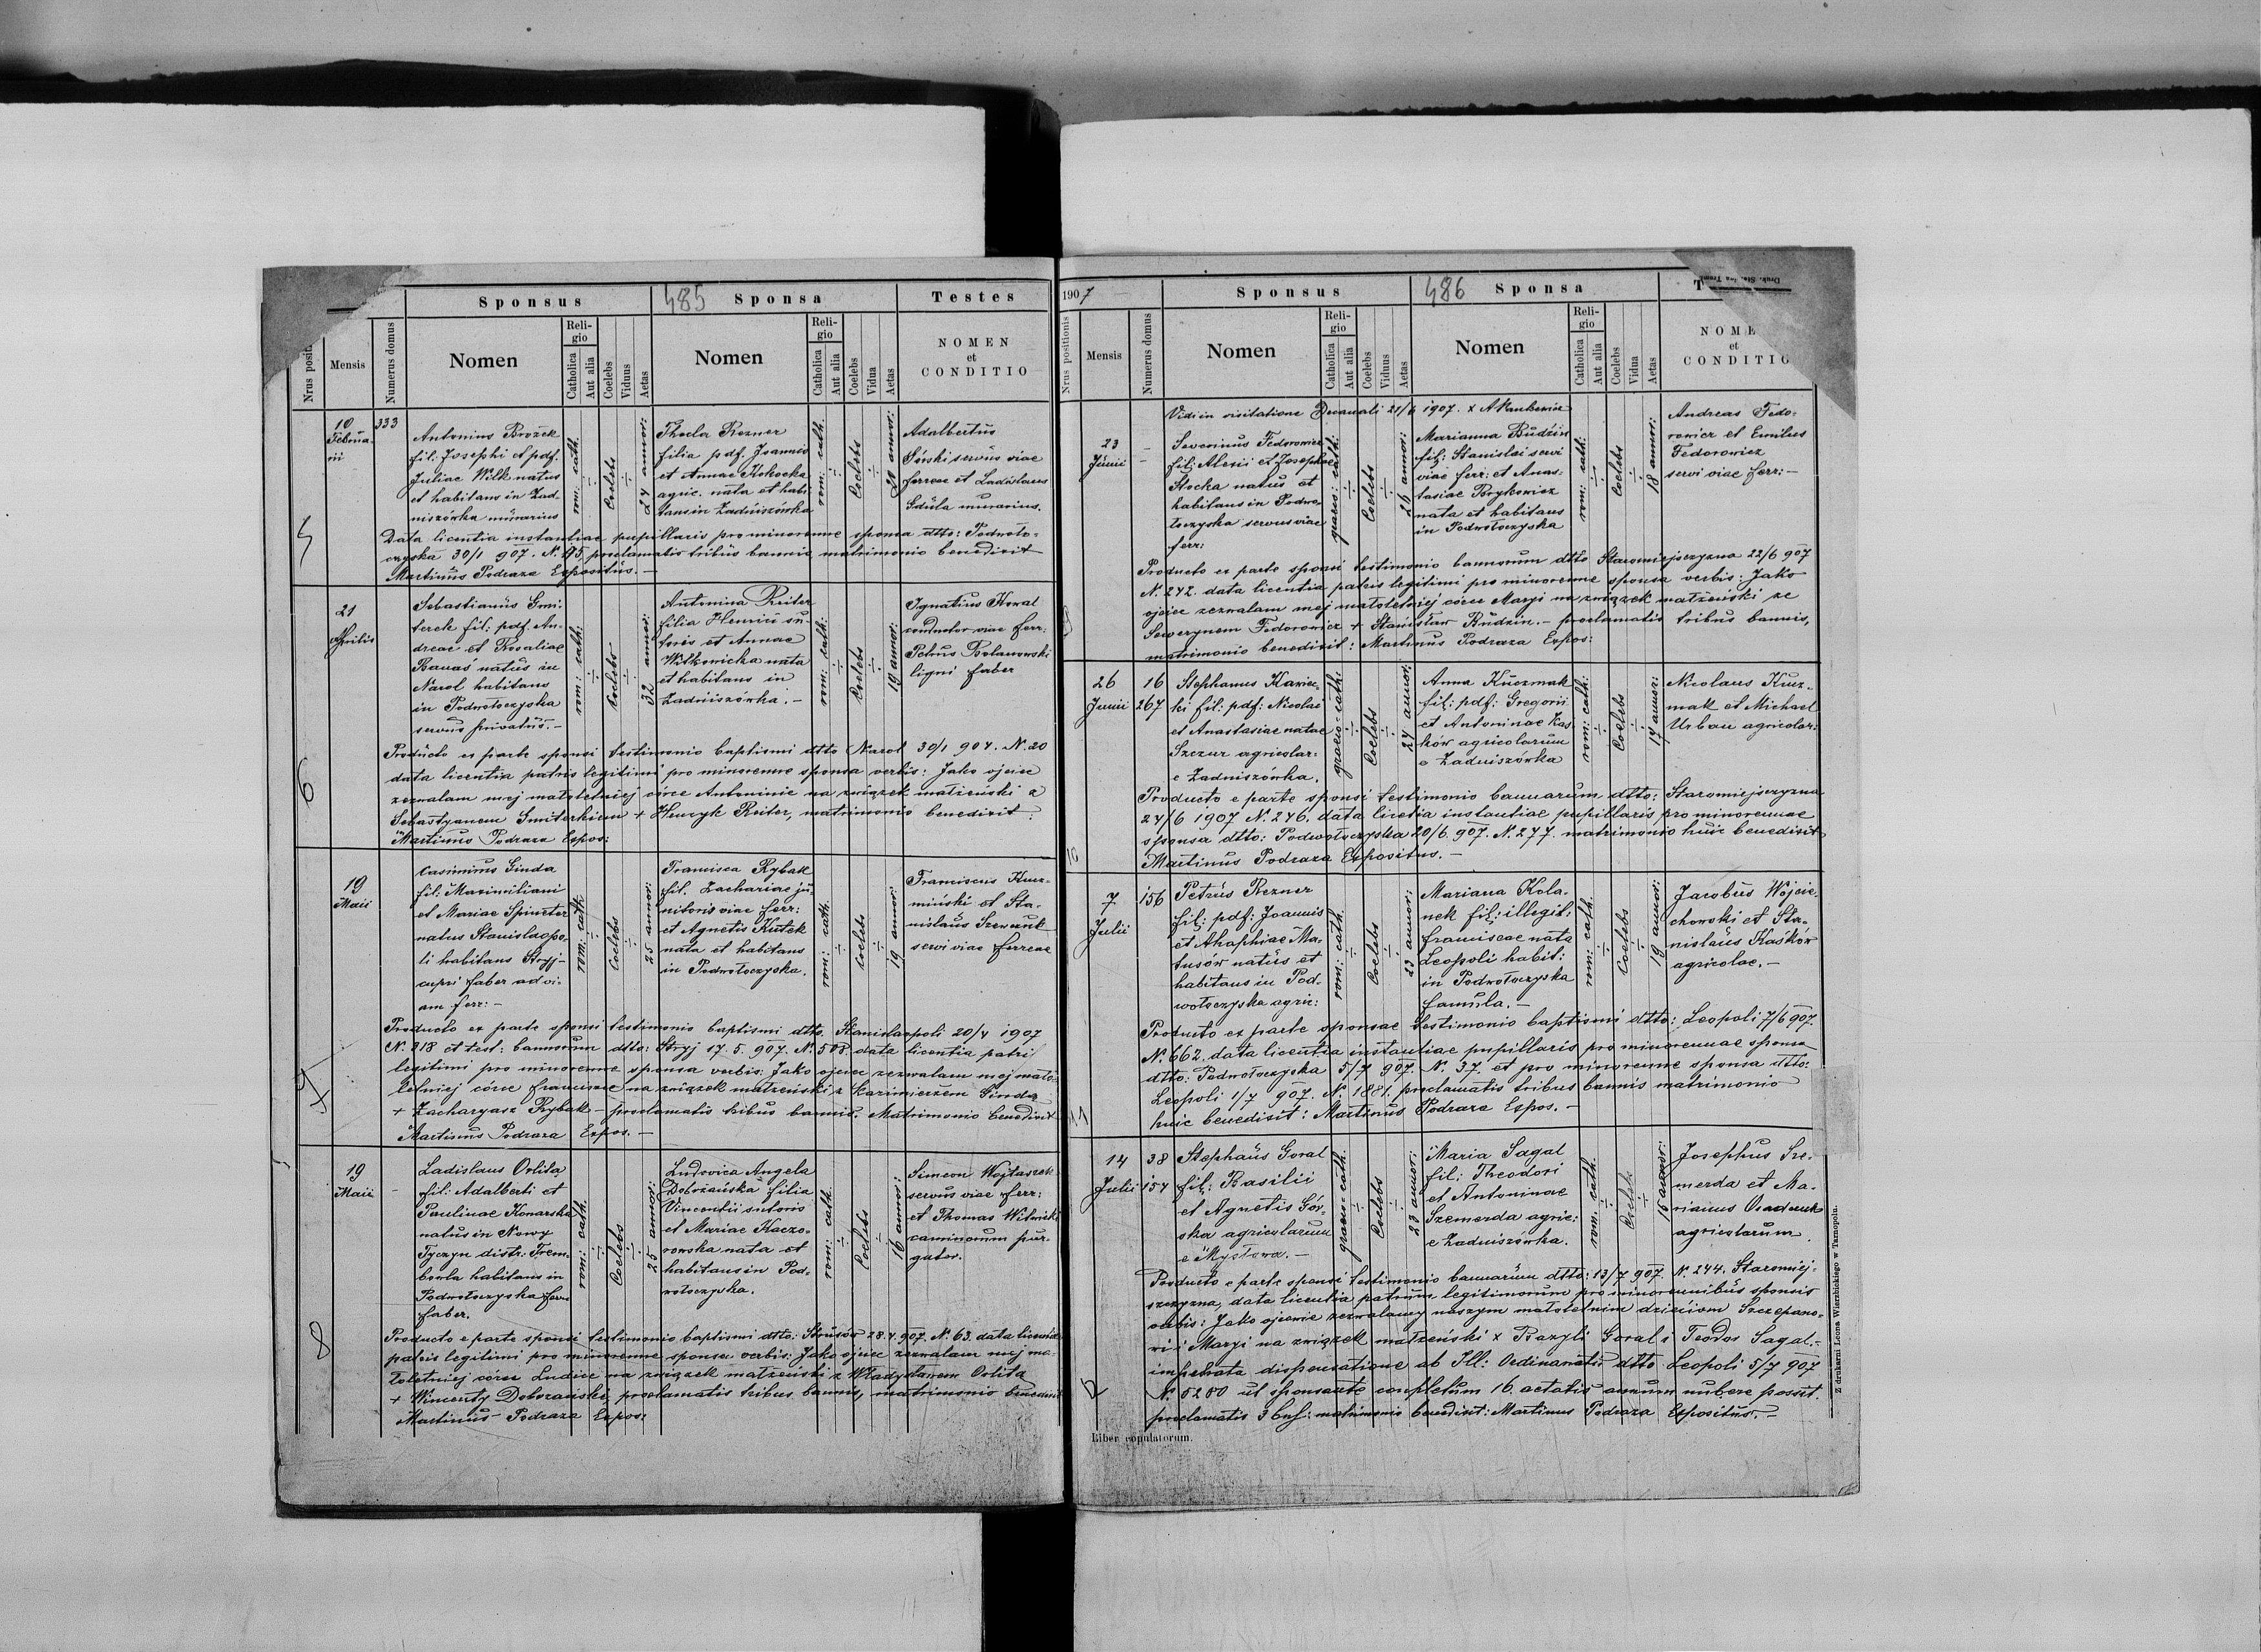 Sponsus
485 Sponsa
Testes
Nrus posit
Mensis
Numerus domus
Nomen
Religio
Catholica
Aut alia
Coelebs
Viduus
Aetas
Nomen
Religio
Catholica
Aut alia
Coelebs
Vidua
Aetas
NOMEN
et
CONDITIO
5
10
Februa-
rii
333
Antonius Brożek
fil: Josephi et pdf.
Juliae Wilk natus
et habitans in Zad-
niszówka murarius
rom: cath.
Coelebs
24 annor:
Thecla Rezner
filia pdf. Joannis
et Annae
agric. nata et habi
tans in Zadniszówka
rom: cath.
Coelebs
20 annor:
Adalbertus
Górski servus viae
ferreae et Ladislaus
murarius.
Data licentia instantiae pupillaris pro minorenne sponsa dtto: Podwoło-
czyska 30/1 907. N. proclamatis tribus bannis matrimonio benedixit
Martinus Podraza Expositus.—
6
21
Aprilis
Sebastianus Smi-
terek fil: pdf. An-
dreae et Rosaliae
Banaś natus in
Narol habitans
in Podwołoczyska
servus privatus.—
rom: cath:
Coelebs
32 annor:
Antonina Reiter
filia Henrici su-
toris et Annae
Witkowicka nata
et habitans in
Zadniszówka.—
rom: cath:
Coelebs
19 annor:
Ignatius Kowal
conductor viae ferr:
Petrus Bolanowski
ligni faber
Producto ex parte sponsi testimonio baptismi dtto Narol 30/1 904. N. 20
data licentia patris legitimi pro minorenne sponsa verbis: Jako ojciec
zezwalam mej małoletniej córce Antoninie na związek małżeński z
Sebastyanem Smiterkiem + Henryk Reiter, matrimonio benedixit:
Martinus Podraza Expos:
7
19
Maii
Casimirus Ginda
fil: Maximiliani
et Mariae Spinster
natus Stanislaopo-
li habitans Stryj-
cupri faber ad vi-
am ferr:—
rom: cath
Coelebs
25 annor:
Francisca Rybak
fil. Zachariae ju-
nitoris viae ferr:
et Agnetis Kutek
nata et habitans
in Podwołoczyska.
rom: cath.
Coelebs
19 annor:
Franciscus Kuz-
miński et Sta-
nislaus Szewczuk
servi viae ferreae
Producto ex parte sponsi testimonio baptismi dtto. Stanislaopoli 20/4 1907
N. 318 et test: bannorum dtto: Stryj 17. 5. 907. N. 508 data licentia patri
legitimi pro minorenne sponsa verbis: Jako ojciec zezwalam mej mało-
letniej córce Franciszce na związek małżeński z Kazimierzem Ginda
+ Zacharyasz Rybak – proclamatis tribus bannis. Matrimonio benedixit
Martinus Podraza Expos.—
8
19
Maii
Ladislaus Orlita
fil: Adalberti et
Paulinae Konarska
natus in Nowy
Tyczyn distr: Trem-
bowla habitans in
Podwołoczyska ferri
faber.
rom: cath.
Coelebs
25 annor:
Ludovica Angela
Dobrzańska filia
Vincentii sutoris
et Mariae Kaczo-
rowska nata et
habitans in Pod-
wołoczyska.
rom: cath.
Coelebs
16 annor:
Simeon Wojtaszek
servus viae ferr:
et Thomas Witwicki
caminorum pur-
gator.
Producto e parte sponsi testimonio baptismi dtto: Strusów 28. 4. 907. N. 63. data licentia
patris legitimi pro minorenne sponsa verbis: Jako ojciec zezwalam mej ma-
łoletniej córce Ludwice na związek małżeński z Władysławem Orlita
+ Wincenty Dobrzański, proclamatis tribus bannis, matrimonio benedixit
Martinus Podraza Expos:
1907
Sponsus
486 Sponsa
T
Nrus positionis
Mensis
Numerus domus
Nomen
Religio
Catholica
Aut alia
Coelebs
Viduus
Aetas
Nomen
Religio
Catholica
Aut alia
Coelebs
Vidua
Aetas
NOME
et
CONDITIO
Vidi in visitatione Decanali 21/6 1907. x
23
Junii
Severinus Fedorowicz
fil: Alexii et Josephae
Stocka natus et
habitans in Podwo-
łoczyska servus viae
ferr:
graeco: cath:
Coelebs
26 annor:
Marianna Budzin
fil: Stanislai servi
viae ferr: et Anas-
tasiae Brykowicz
nata et habitans
in Podwołoczyska
rom: cath:
Coelebs
18 annor:
Andreas Fedo-
rowicz et Emilus
Fedorowicz
servi viae ferr:—
Producto ex parte sponsi testimonio bannorum dtto Staromiejszczyzna 22/6 907
N. 242. data licentia patris legitimi pro minorenne sponsa verbis: Jako
ojciec zezwalam mej małoletniej córce Maryi na związek małżeński ze
Sewerynem Fedorowicz + Stanisław Budzin.– proclamatis tribus bannis,
matrimonio benedixit: Martinus Podraza Expos:
10
26
Junii
16
267
Stephanus Kawec-
ki fil: pdf: Nicolai
et Anastasiae natae
Szczur agricolar:
e Zadniszówka.
graeco: cath:
Coelebs
24 annor:
Anna Kuczmak
fil: pdf: Gregorii
et Antoninae Kaś-
ków agricolarum
e Zadniszówka
rom: cath:
Coelebs
17 annor:
Nicolaus Kucz-
mak et Michael
Urban agricolar:
Producto e parte sponsi testimonio bannorum dtto: Staromiejszczyzna
24/6 1907 N. 246. data licetia instantiae pupillaris pro minorennae
sponsa dtto: Podwołoczyska 20/6. 907. N. 277. matrimonio huic benedixit
Martinus Podraza Expositus.—
11
7
Julii
156
Petrus Rezner
fil: pdf: Joannis
et Ahaphiae Ma-
tusów natus et
habitans in Pod-
wołoczyska agric:
rom: cath:
Coelebs
23 annor:
Mariana Kola-
nek fil: illegit:
Franciscae nata
Leopoli habit:
in Podwołoczyska
famula.—
rom: cath.
Coelebs
19 annor:
Jacobus Wojcie-
chowski et Sta-
nislaus Kaśków
agricolae.—
Producto ex parte sponsae testimonio baptismi dtto: Leopoli 7/6 907.
N. 662. data licentia instantiae pupillaris pro minorennae sponsa
dtto: Podwołoczyska 5/7 907. N. 37. et pro minorenne sponsa dtto:
Leopoli 1/7 907. N. 1881. proclamatis tribus bannis matrimonio
huic benedixit: Martinus Podraza Expos.—
14
Julii
38
154
Stephaus Goral
fil: Basilii
et Agnetis Gór-
ska agricolarum
e Mysłowa.—
graeco: cath.
Coelebs
23 annor:
Maria Sagal
fil: Theodori
et Antoninae
Szemerda agric:
e Zadniszówka.
rom. cath.
Coelebs
15 annor:
Josephus Sze-
merda et Ma-
rianus
agricolarum.
Producto e parte sponsi testimonio bannorum dtto: 13/7 907. N. 244. Staromiej-
szczyzna, data licentia patrum legitimorum pro minorennibus sponsis
verbis: Jako ojcowie zezwalamy naszym małoletnim dzieciom Szczepano-
wi i Maryi na związek małżeński x Bazyli Goral i Teodor Sagal.-
impetrata dispensatione ab Ill: Ordinariatu dtto Leopoli 5/7 907
N. 5280 ut sponsa ante completum 16. aetatis annum nubere possit.
proclamatis 3 matrimonio benedixit: Martinus Podraza Expositus.—
Liber copulatorum.
Z drukarni Leona Wierzbickiego w Tarnopolu.